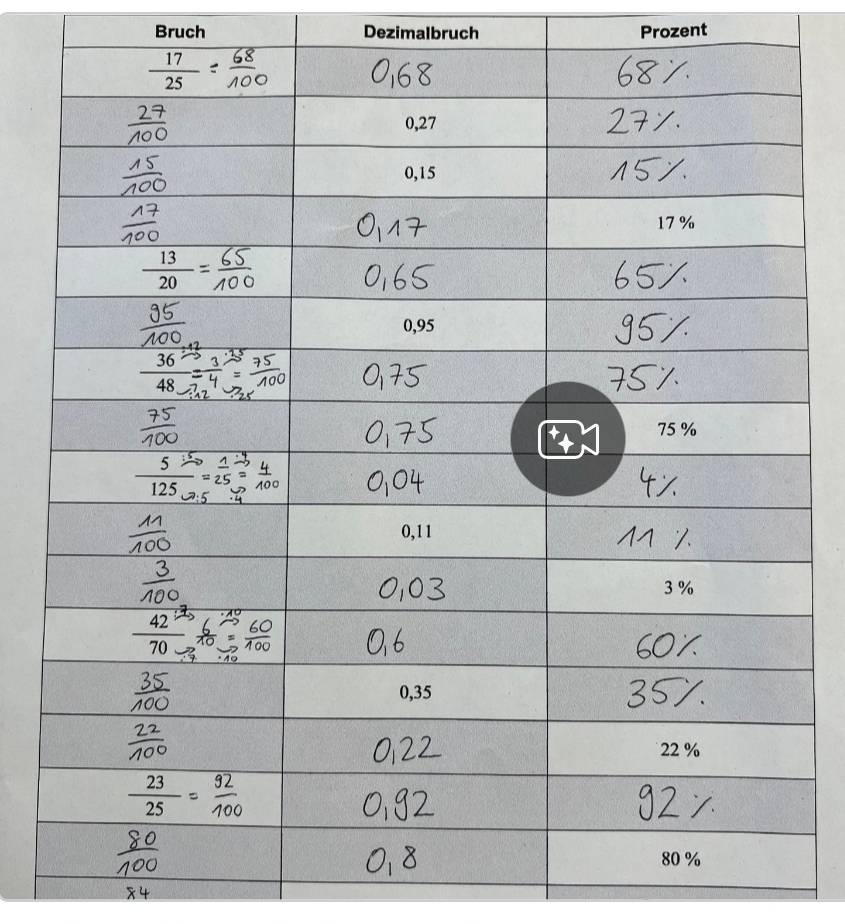 Bruch Dezimalbruch Prozent
17/25 = 68/100 0,68 68%
27/100 0,27 27%
15/100 0,15 15%
17/100 0,17 17 %
13/20 = 65/100 0,65 65%
95/100 0,95 95%
36/48 :12 :12 = 3/4 ·25 ·25 = 75/100 0,75 75%
75/100 0,75 75 %
5/125 :5 :5 = 1/25 ·4 ·4 = 4/100 0,04 4%
11/100 0,11 11 %
3/100 0,03 3 %
42/70 :7 :7 6/10 ·10 ·10 = 60/100 0,6 60%
35/100 0,35 35%
22/100 0,22 22 %
23/25 = 92/100 0,92 92 %
80/100 0,8 80 %
84